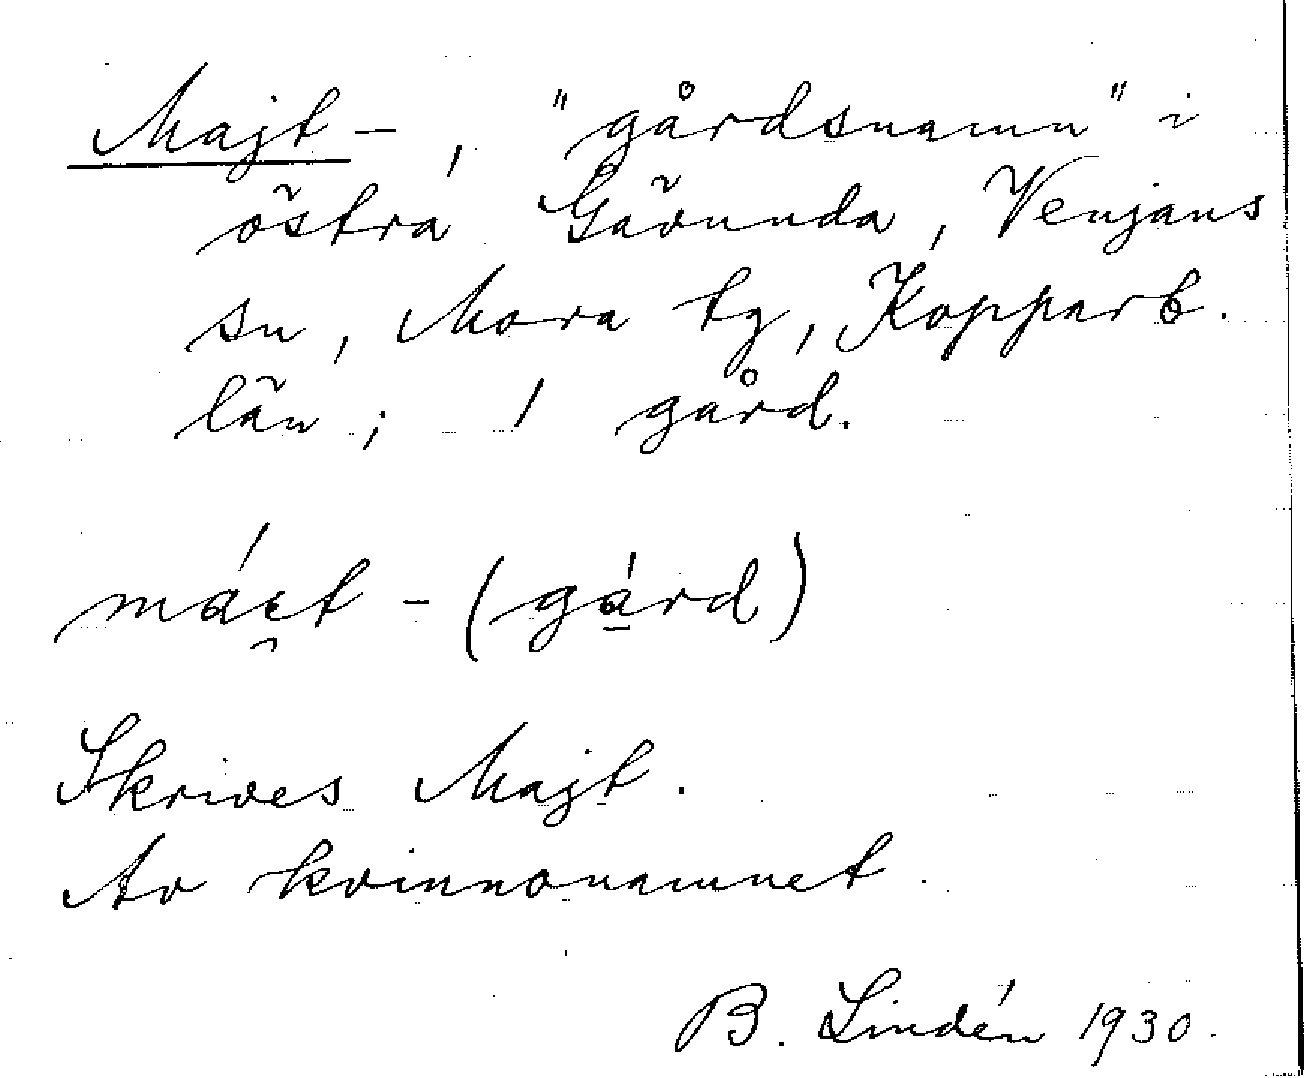 Majt-, "gårdsnamn" i
östra Gävunda, Venjans
sn, Mora tg, Kopparb.
län; 1 gård.
máit-(gá̱rd)
Skrives Majt.
Av kvinnonamnet.
B. Lindén 1930.